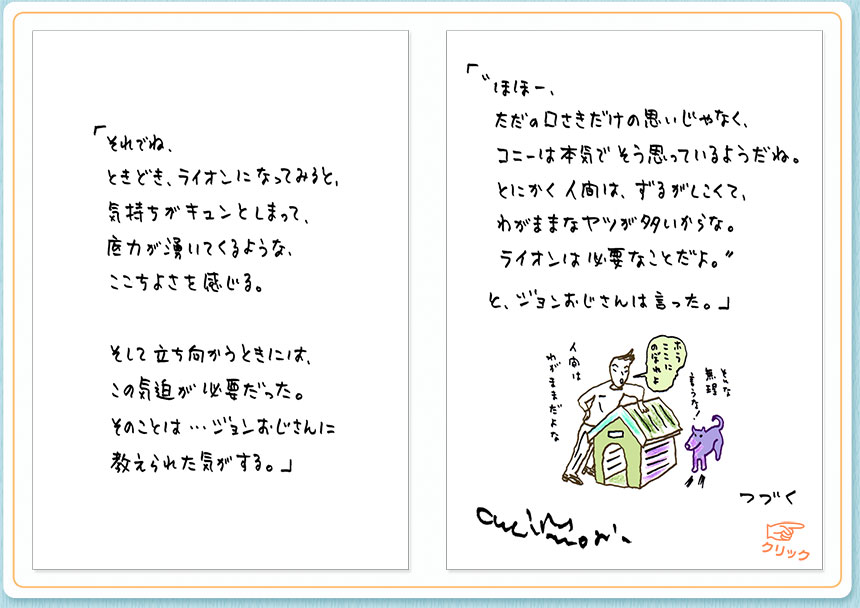 「それでね、
ときどき、ライオンになってみると、
気持ちがキュンとしまって、
底力が湧いてくるような、
ここちよさを感じる。
そして立ち向かうときには、
この気迫が必要だった。
そのことは…ジョンおじさんに
教えられた気がする。」
「“ほほー、
ただの口さきだけの思いじゃなく、
コニーは本気でそう思っているようだね。
とにかく人間は、ずるがしこくて、
わがままなヤツが多いからな。
ライオンは必要なことだよ。”
と、ジョンおじさんは言った。」
ホラ
ここに
のぼれよ
人間は
わがままだよな
そんな
無理
言うな!
つづく
クリック